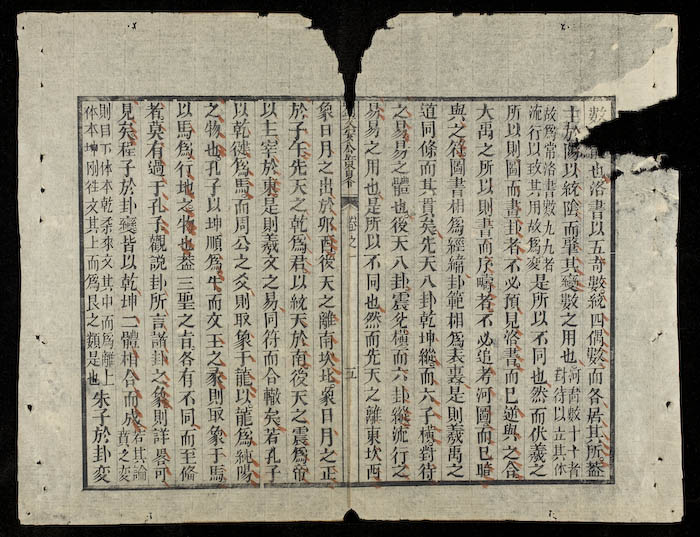 數也洛書以五奇數統四偶數而各居其所蓋
主於陽以統陰而肇其變數之用也河圖數十十者對待以立其体
故為常洛書數九九者流行以致其用故為變是所以不同也然而伏羲之
所以則圖而畫卦者不必預見洛書而已逆與之合
大禹之所以則書而序疇者不必追考河圖而已暗
與之符圖書相為經緯卦範相為表裏是則羲禹之
道同條而共貫矣先天八卦乾坤縱而六子橫對待
之易易之體也後天八卦震兌橫而六卦縱流行之
易易之用也是所以不同也然而先天之離東坎西
卷之
五
象日月之出於卯酉後天之離南坎北象日月之正
於子午先天之乾為君以統天於南後天之震為帝
以主宰於東是則羲文之易同符而合轍矣若孔子
以乾健為馬而周公之爻則取象于龍以龍為純陽
之物也孔子以坤順為牛而文王之彖則取象于馬
以馬為行地之物也蓋三聖之旨各有不同而至脩
者莫有過于孔子觀說卦所言諸卦之象則詳畧可
見矣程子於卦變皆以乾坤二體相合而成若其論賁之變
則曰下体本乾柔來文其中而為離上体本坤剛往文其上而為艮之類是也朱子於卦變